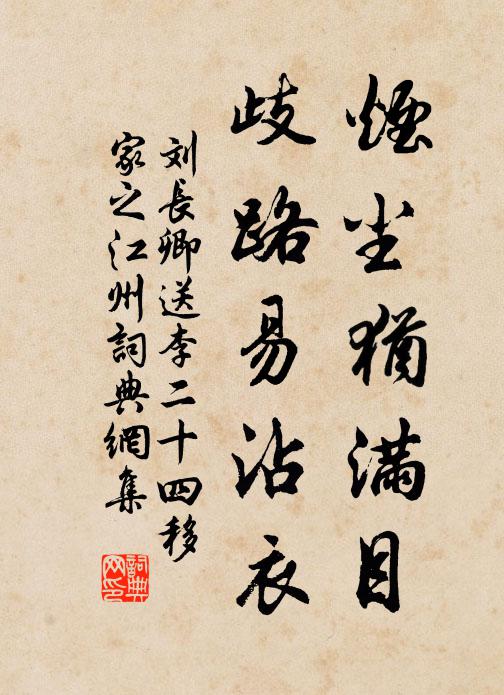 煙尘猶满目
歧路易沾衣
刘長卿送李二十四移
家之江州詞典網集
詞典
网印